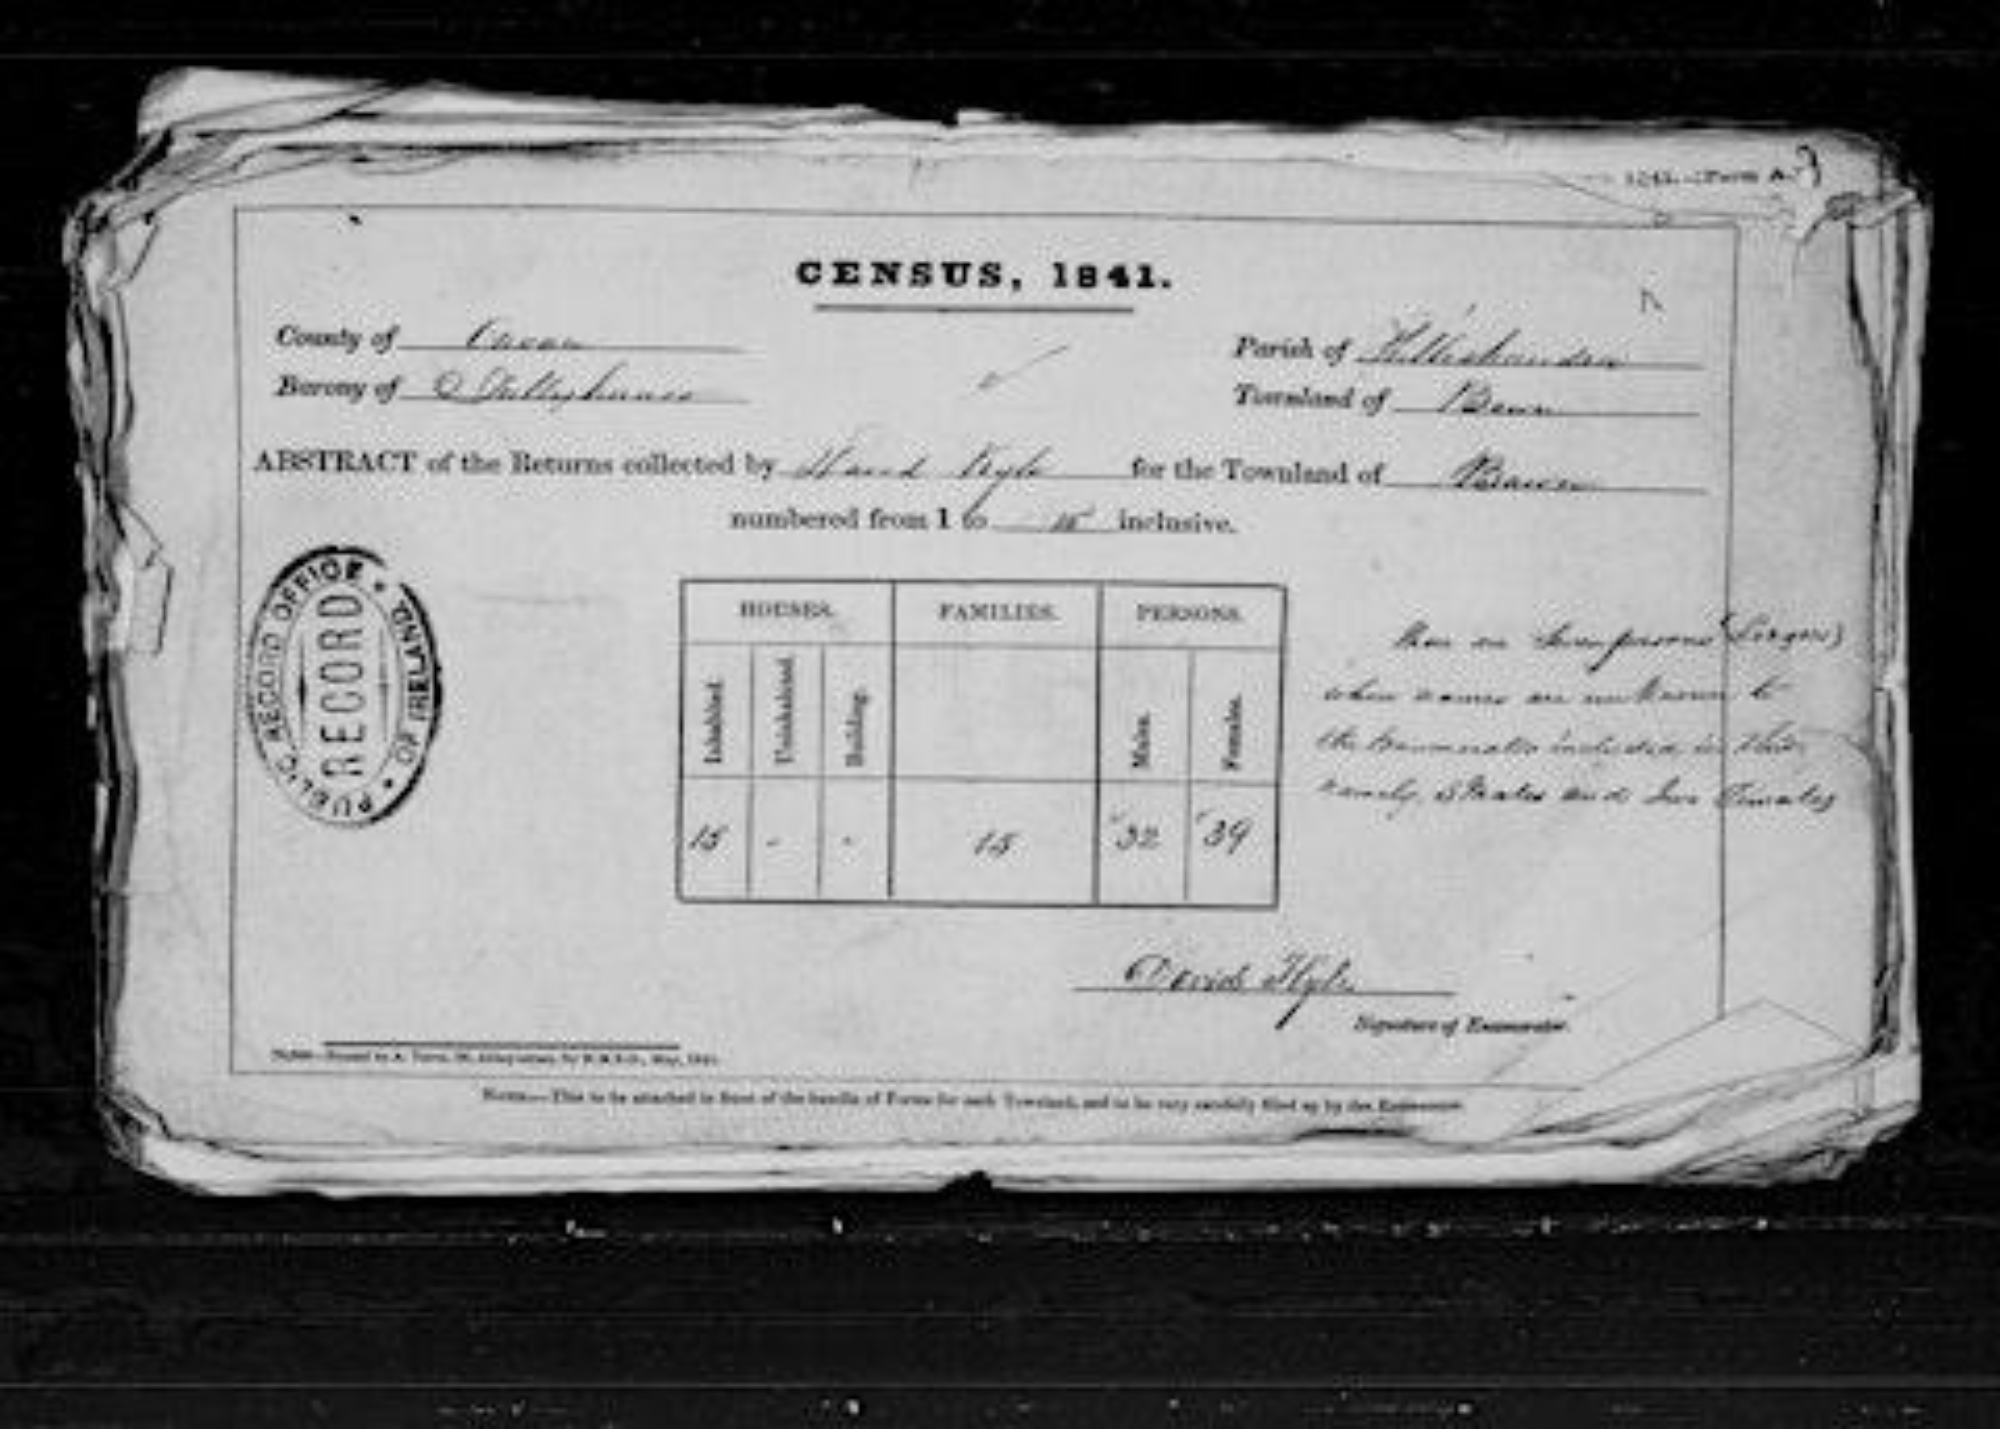 1841.—(Form A.)
CENSUS, 1841.
County of Cavan
Parish of Killeshandra
Barony of Tullyhunco
Townland of Bawn
ABSTRACT of the Returns collected by David Kyle for the Townland of Bawn
numbered from 1 to 15 inclusive.
PUBLIC RECORD OFFICE • OF IRELAND •
RECORD
HOUSES. FAMILIES. PERSONS.
Inhabited. Uninhabited. Building. Males. Females.
15 - - 15 32 39
persons
names are unknown to
the Enumerator included in this
namely, Males and two Females
David Kyle
Signature of Enumerator.
NOTE.—This to be attached in front of the bundle of Forms for each Townland, and to be very carefully filled up by the Enumerator.